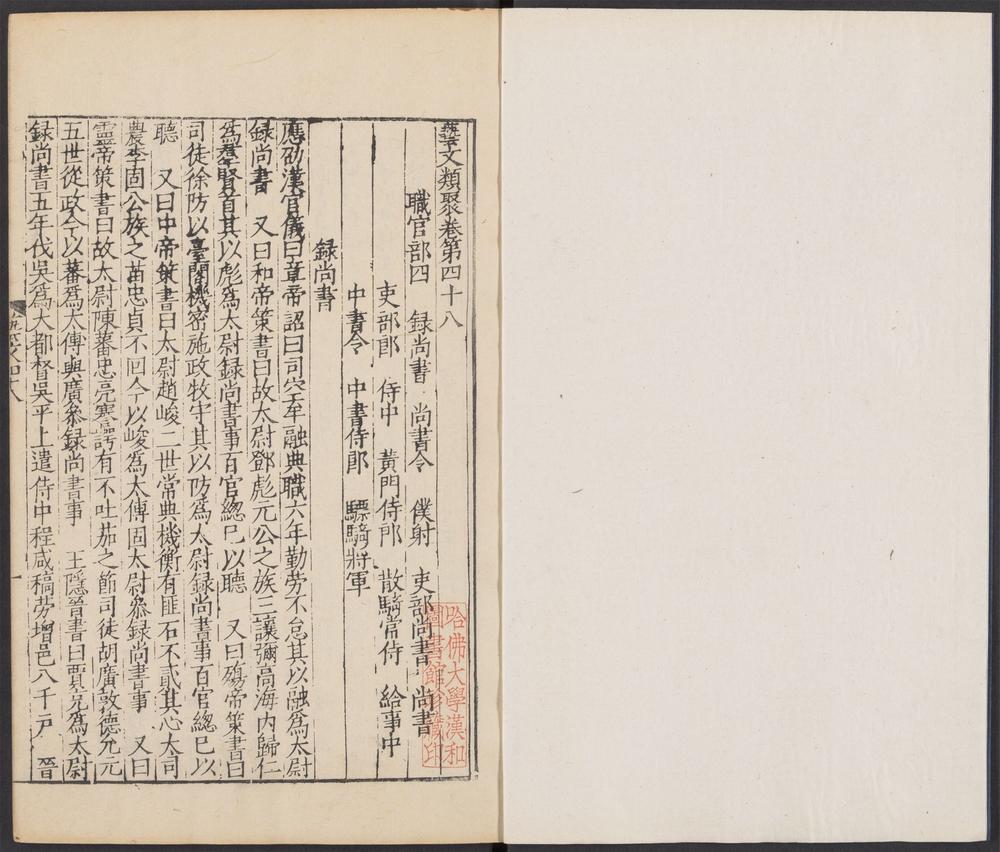 藝文類聚卷第四十八
職官部四 録尚書 尚書令 僕射 吏部尚書 尚書
吏部郎 侍中 黃門侍郎 散騎常侍 給事中
中書令 中書侍郎 驃騎將軍
録尚書
應劭漢官儀曰章帝詔曰司空牟融典職六年勤勞不怠其以融爲太尉
録尚書 又曰和帝策書曰故太尉鄧彪元公之族三讓彌高海内歸仁
爲羣賢首其以彪爲太尉録尚書事百官緫巳以聽 又曰殤帝策書曰
司徒徐防以臺閣機密施政牧守其以防爲太尉録尚書事百官緫巳以
聽 又曰中帝策書曰太尉趙峻二世常典機衡有匪石不貳其心大司
農李固公族之苗忠貞不回今以峻爲太傅固太尉叅録尚書事 又曰
靈帝策書曰故太尉陳蕃忠亮謇諤有不吐茹之節司徒胡廣敦德允元
五世從政今以蕃爲太傅與廣叅録尚書事 王隱晉書曰賈充爲太尉
録尚書五年伐吳爲大都督吳平上遣侍中程咸稿勞增邑八千戸 晉
一
哈佛大學漢和
圖書館珍藏印